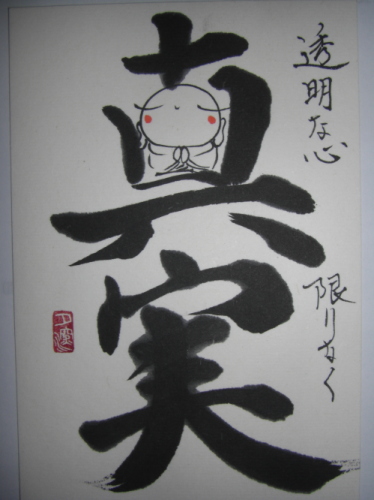 真実
透明な心
限りなく